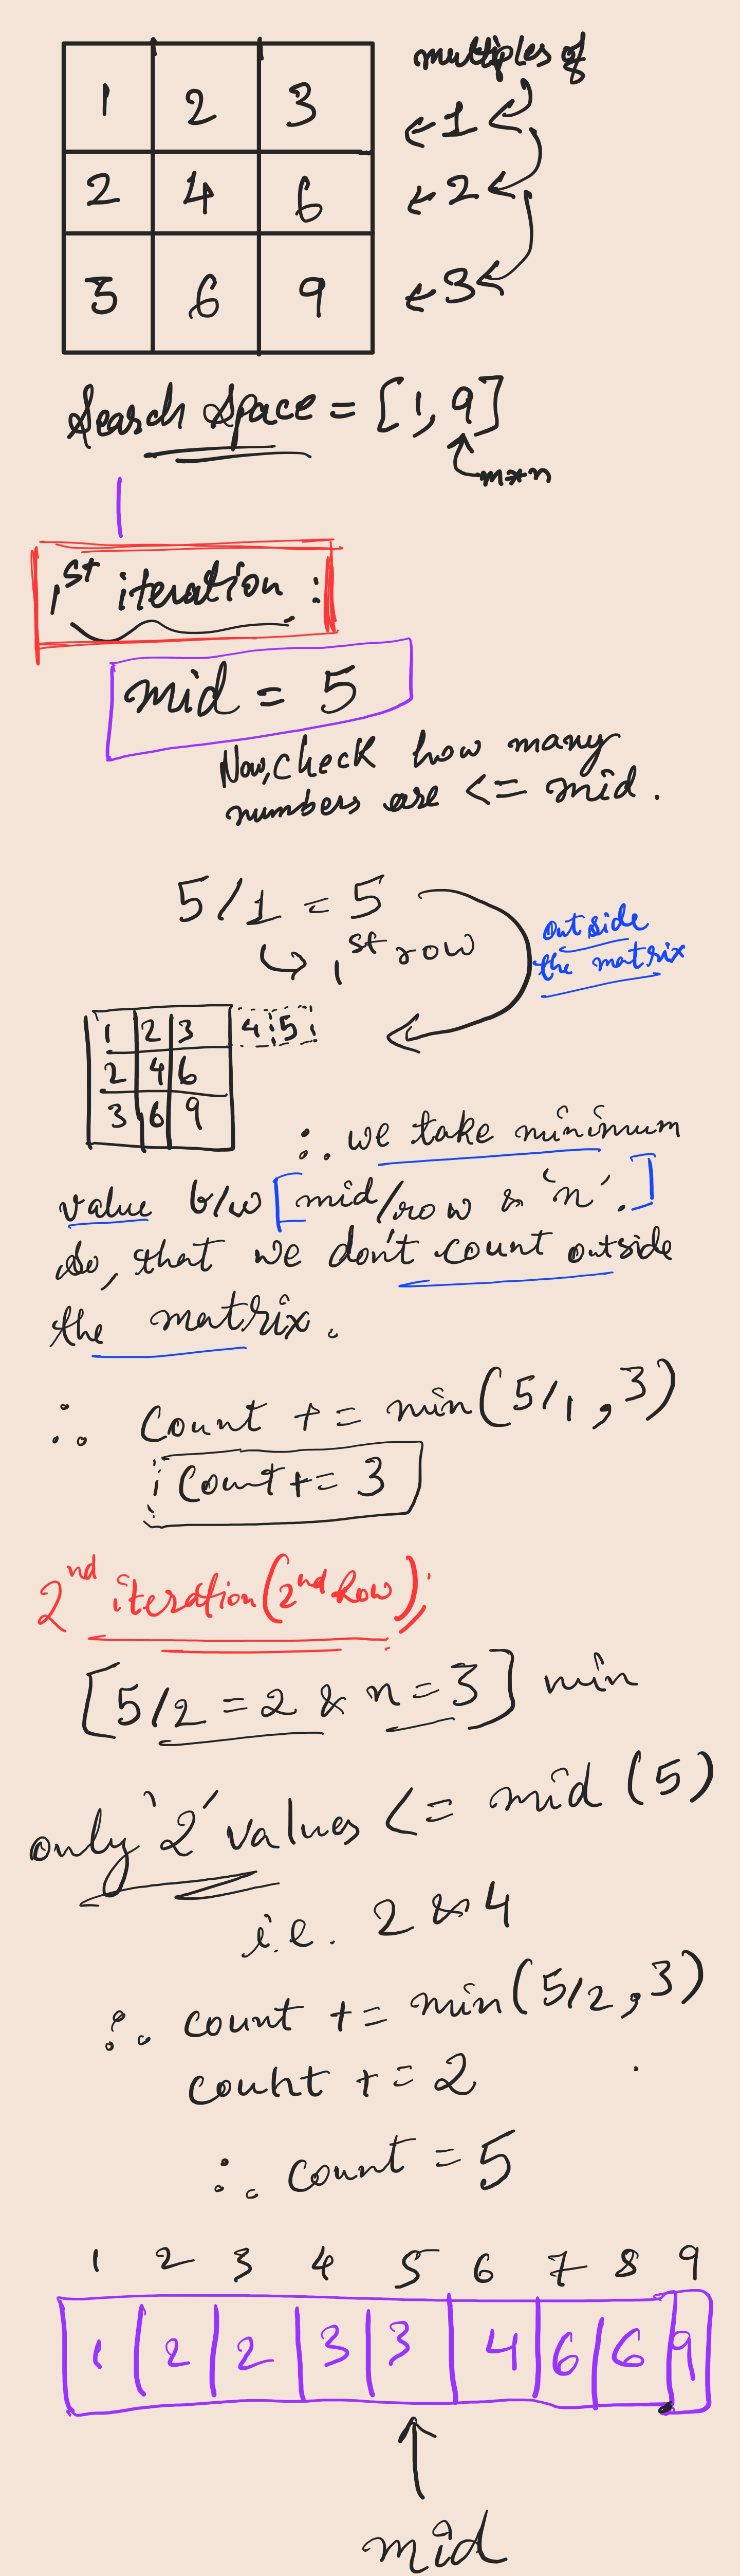 multiples of
1 2 3 ← 1
2 4 6 ← 2
3 6 9 ← 3
Search Space = [1, 9]
m*n
1st iteration :
mid = 5
Now, check how many
numbers are <= mid.
5/1 = 5
outside
the matrix
↳ 1st row
1 2 3 4 5
2 4 6
3 6 9
∴ we take minimum
value b/w [mid/row & 'n'.]
So, that we don't count outside
the matrix.
∴ Count += min(5/1, 3)
Count += 3
2nd iteration (2nd Row);
[5/2 = 2 & n = 3] min
only '2' values <= mid (5)
i.e. 2 & 4
∴ count += min(5/2, 3)
count += 2
∴ count = 5
1 2 3 4 5 6 7 8 9
1 2 2 3 3 4 6 6 9
mid